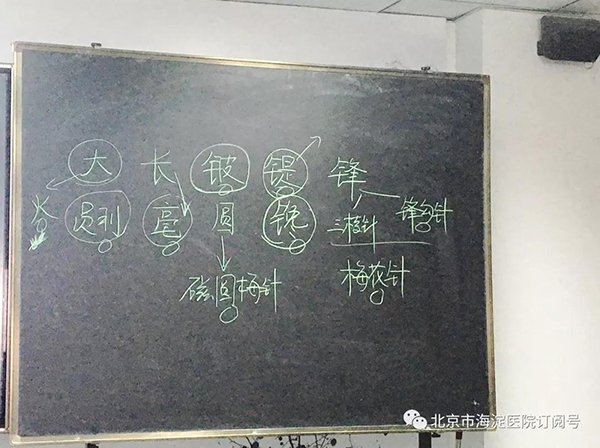 大 长 铍 鍉 锋
火 员利 毫 圆 镵 三棱针 锋勾针
磁圆梅针 梅花针
北京市海淀医院订阅号